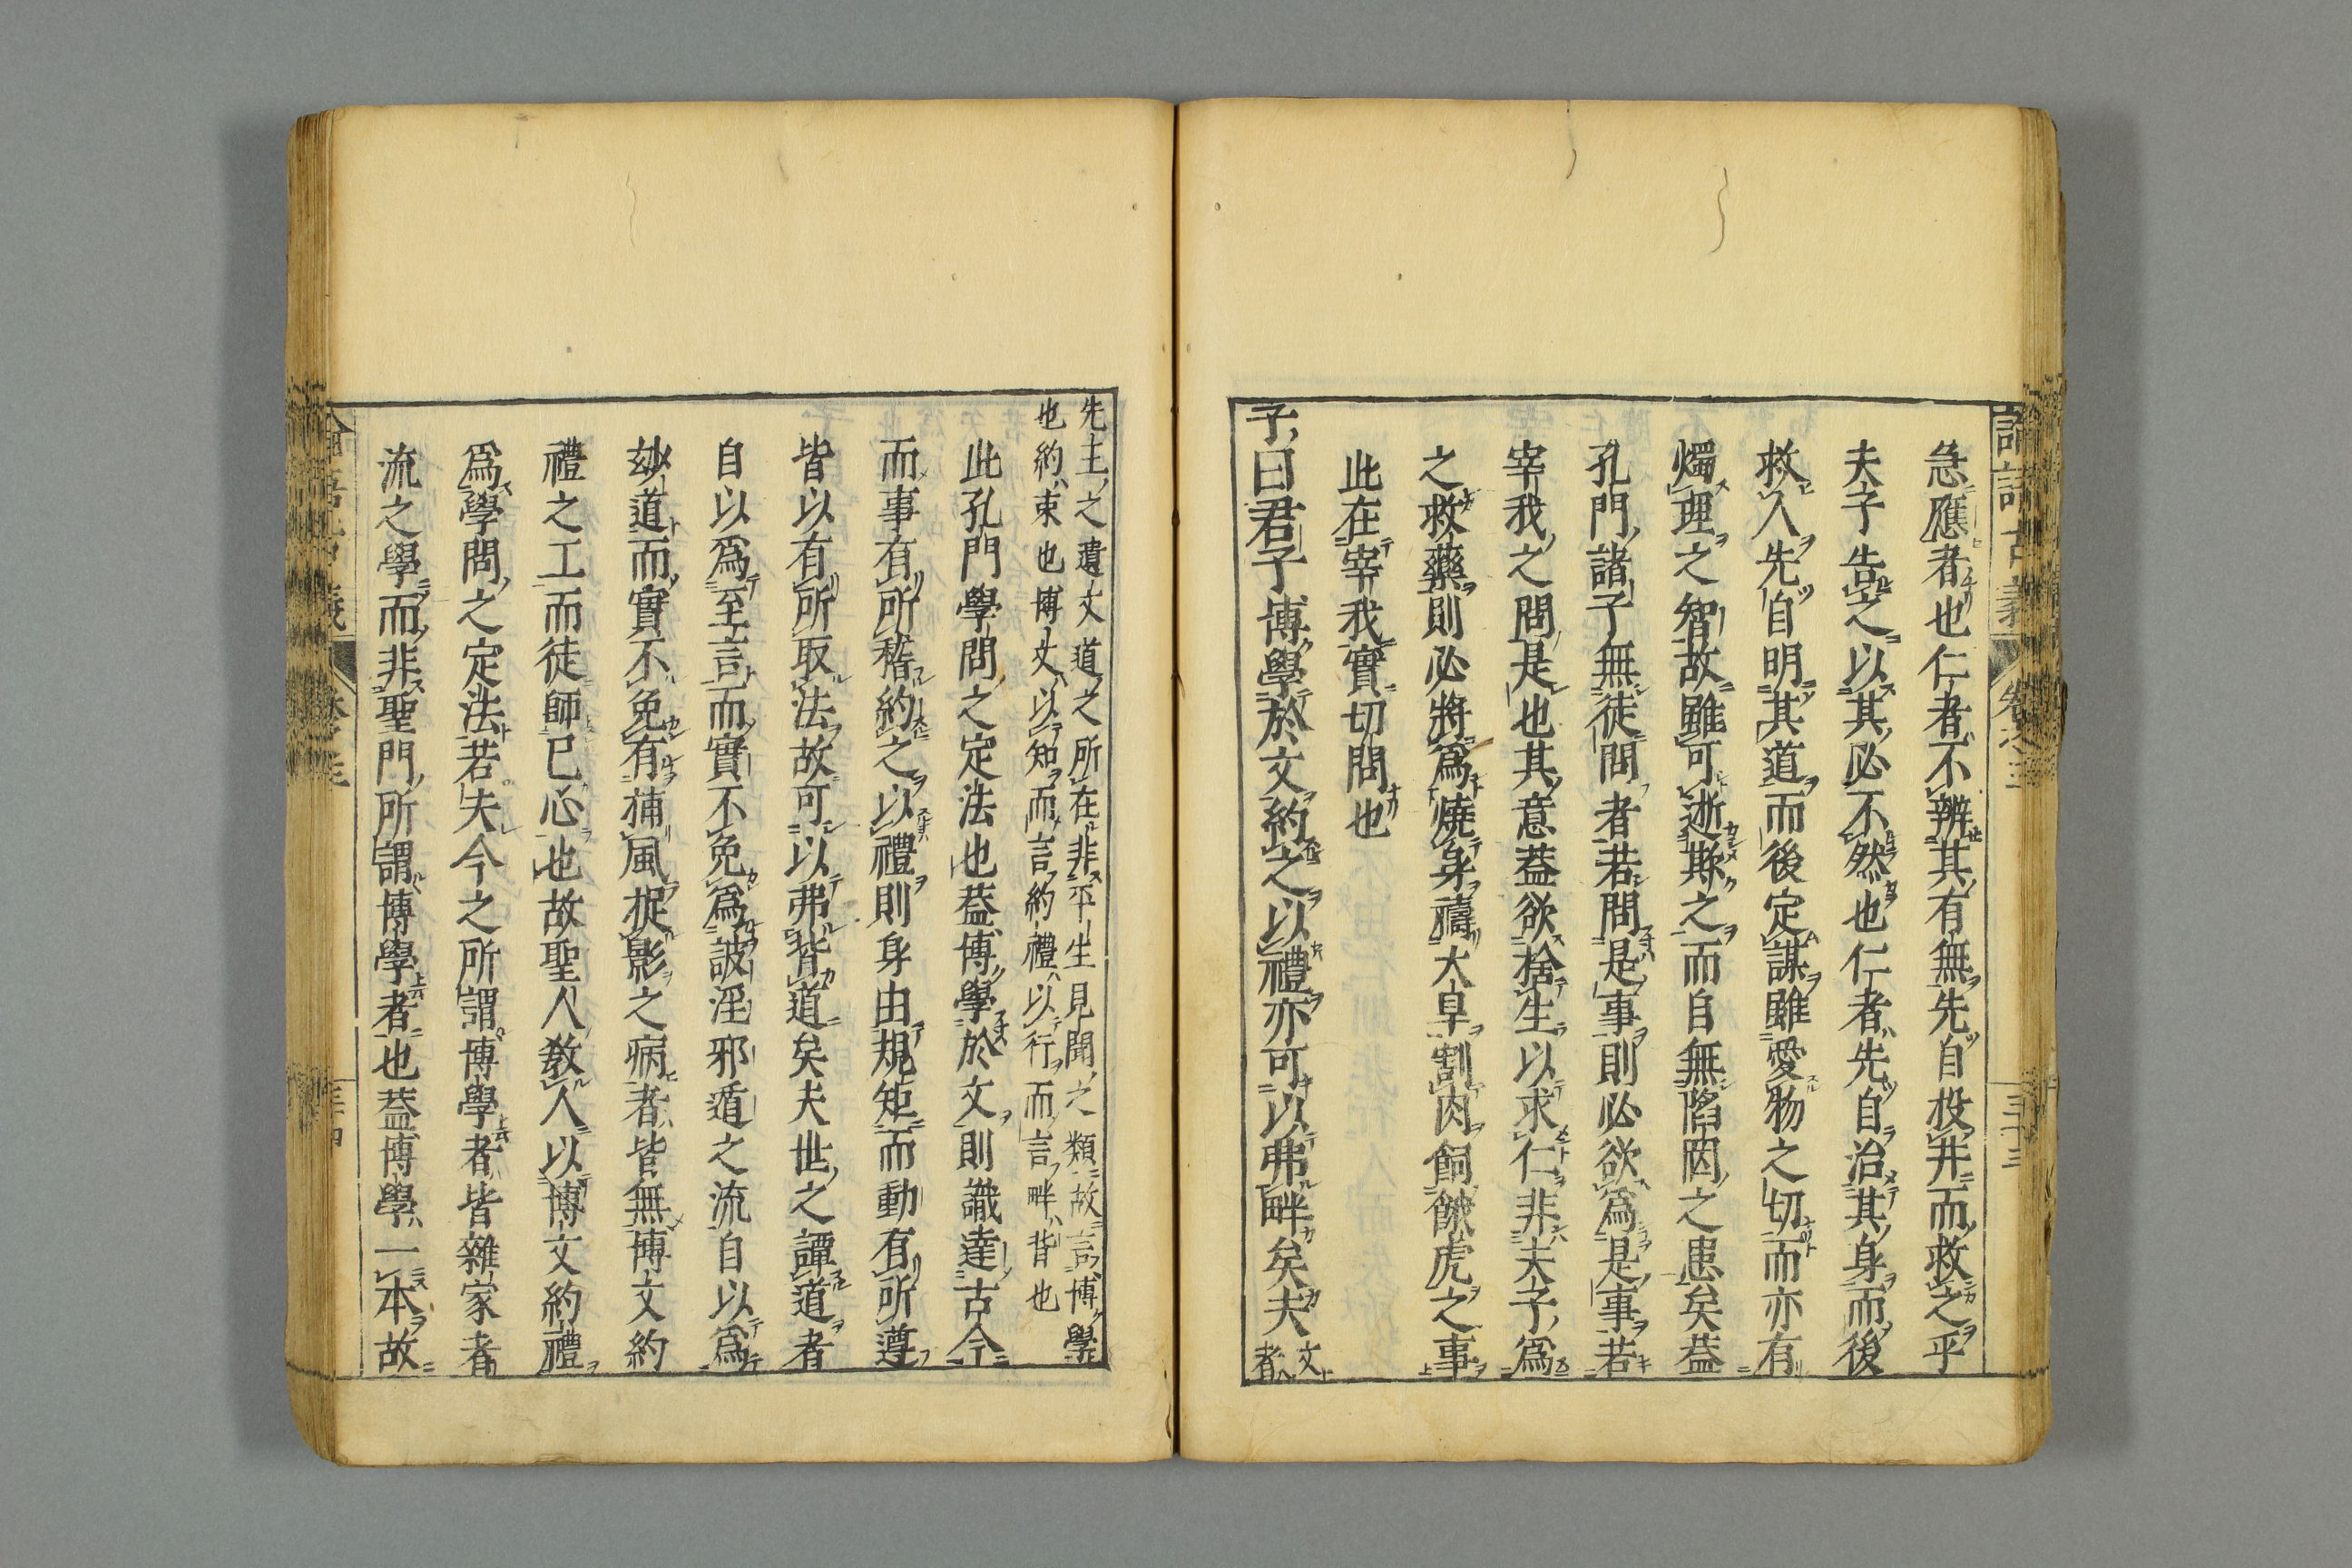 急應者也仁者不辨其有無先自投井而救之乎
夫子告之以其必不然也仁者先自治其身而後
救人先自明其道而後定謀雖愛物之切而亦有
燭理之智故雖可逝欺之而自無陷罔之患矣葢
孔門諸子無徒問者若問是事則必欲爲是事若
宰我之問是也其意葢欲捨生以求仁非夫子爲
之救藥則必將爲燒身禱大旱割肉飼餓虎之事
此在宰我實切問也
子曰君子博學於文約之以禮亦可以弗畔矣夫
文
者
先王之遺文道之所在非平生見聞之類故言博學
也約束也博文以知而言約禮以行而言畔背也
此孔門學問之定法也葢博學於文則識達古今
而事有所稽約之以禮則身由規矩而動有所遵
皆以有所取法故可以弗背道矣夫世之譚道者
自以爲至言而實不免爲詖淫邪遁之流自以爲
玅道而實不免有捕風捉影之病者皆無博文約
禮之工而徒師己心也故聖人敎人以博文約禮
爲學問之定法若夫今之所謂博學者皆雜家者
流之學而非聖門所謂博學者也葢博學一本故